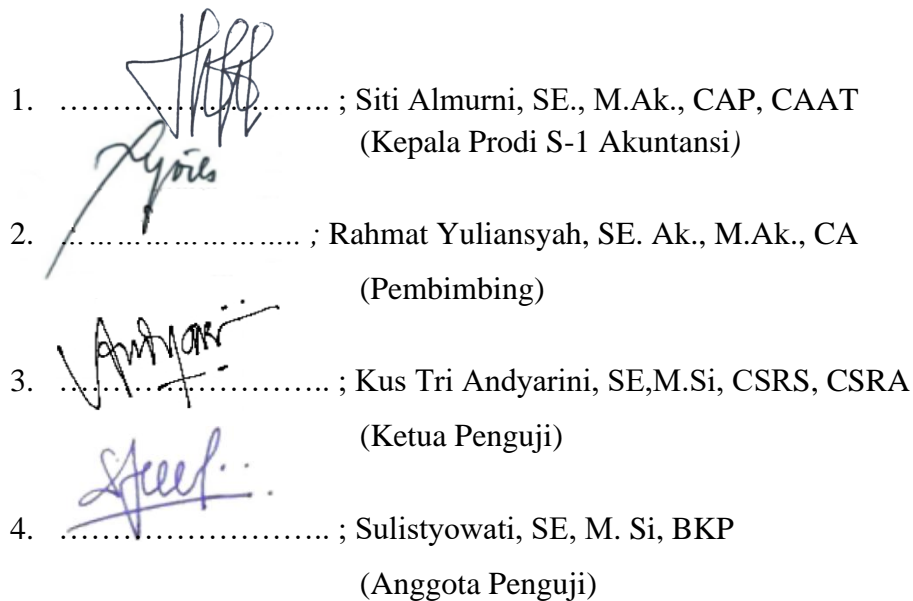 1. ……………………….. ; Siti Almurni, SE., M.Ak., CAP, CAAT
(Kepala Prodi S-1 Akuntansi)
2. …………………….. ; Rahmat Yuliansyah, SE. Ak., M.Ak., CA
(Pembimbing)
3. ……………………….. ; Kus Tri Andyarini, SE,M.Si, CSRS, CSRA
(Ketua Penguji)
4. ……………………….. ; Sulistyowati, SE, M. Si, BKP
(Anggota Penguji)